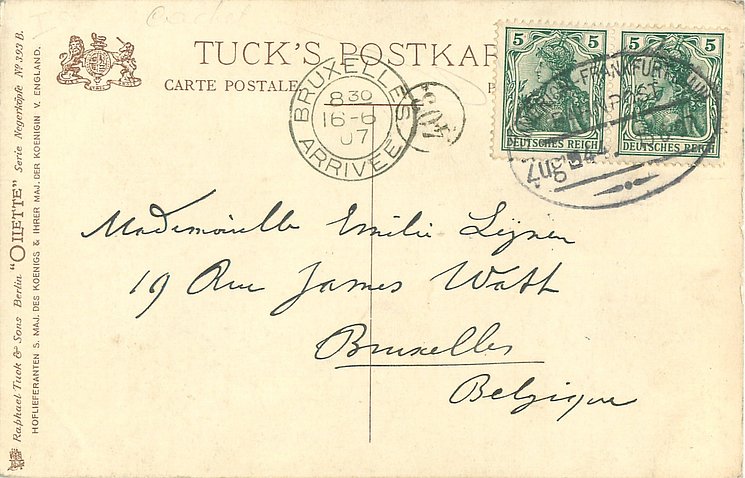 Cachet
TUCK'S POSTKAR
CARTE POSTALE
P
BRUXELLES
8 30
16-6
07
ARRIVÉE
5 5
5 5
DEUTSCHES REICH
DEUTSCHES REICH
FRANKFURT
Mademoiselle Emilie Leynen
19 Rue James Watt
Bruxelles
Belgique
Raphael Tuck & Sons Berlin "OILETTE" Serie Negerköpfe No. 393 B.
HOFLIEFERANTEN S. MAJ. DES KOENIGS & IHRER MAJ. DER KOENIGIN V. ENGLAND.